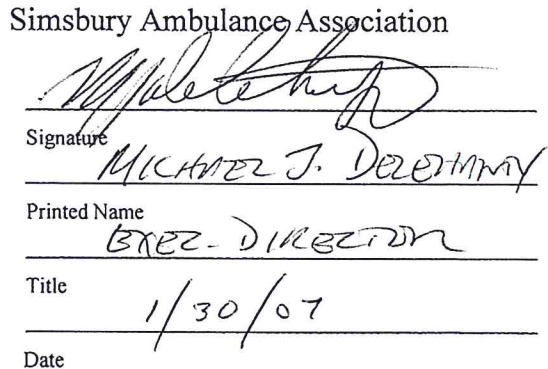 Simsbury Ambulance Association
Signature
MICHAEL J. DELEHANTY
Printed Name
EXEC. DIRECTOR
Title
1/30/07
Date